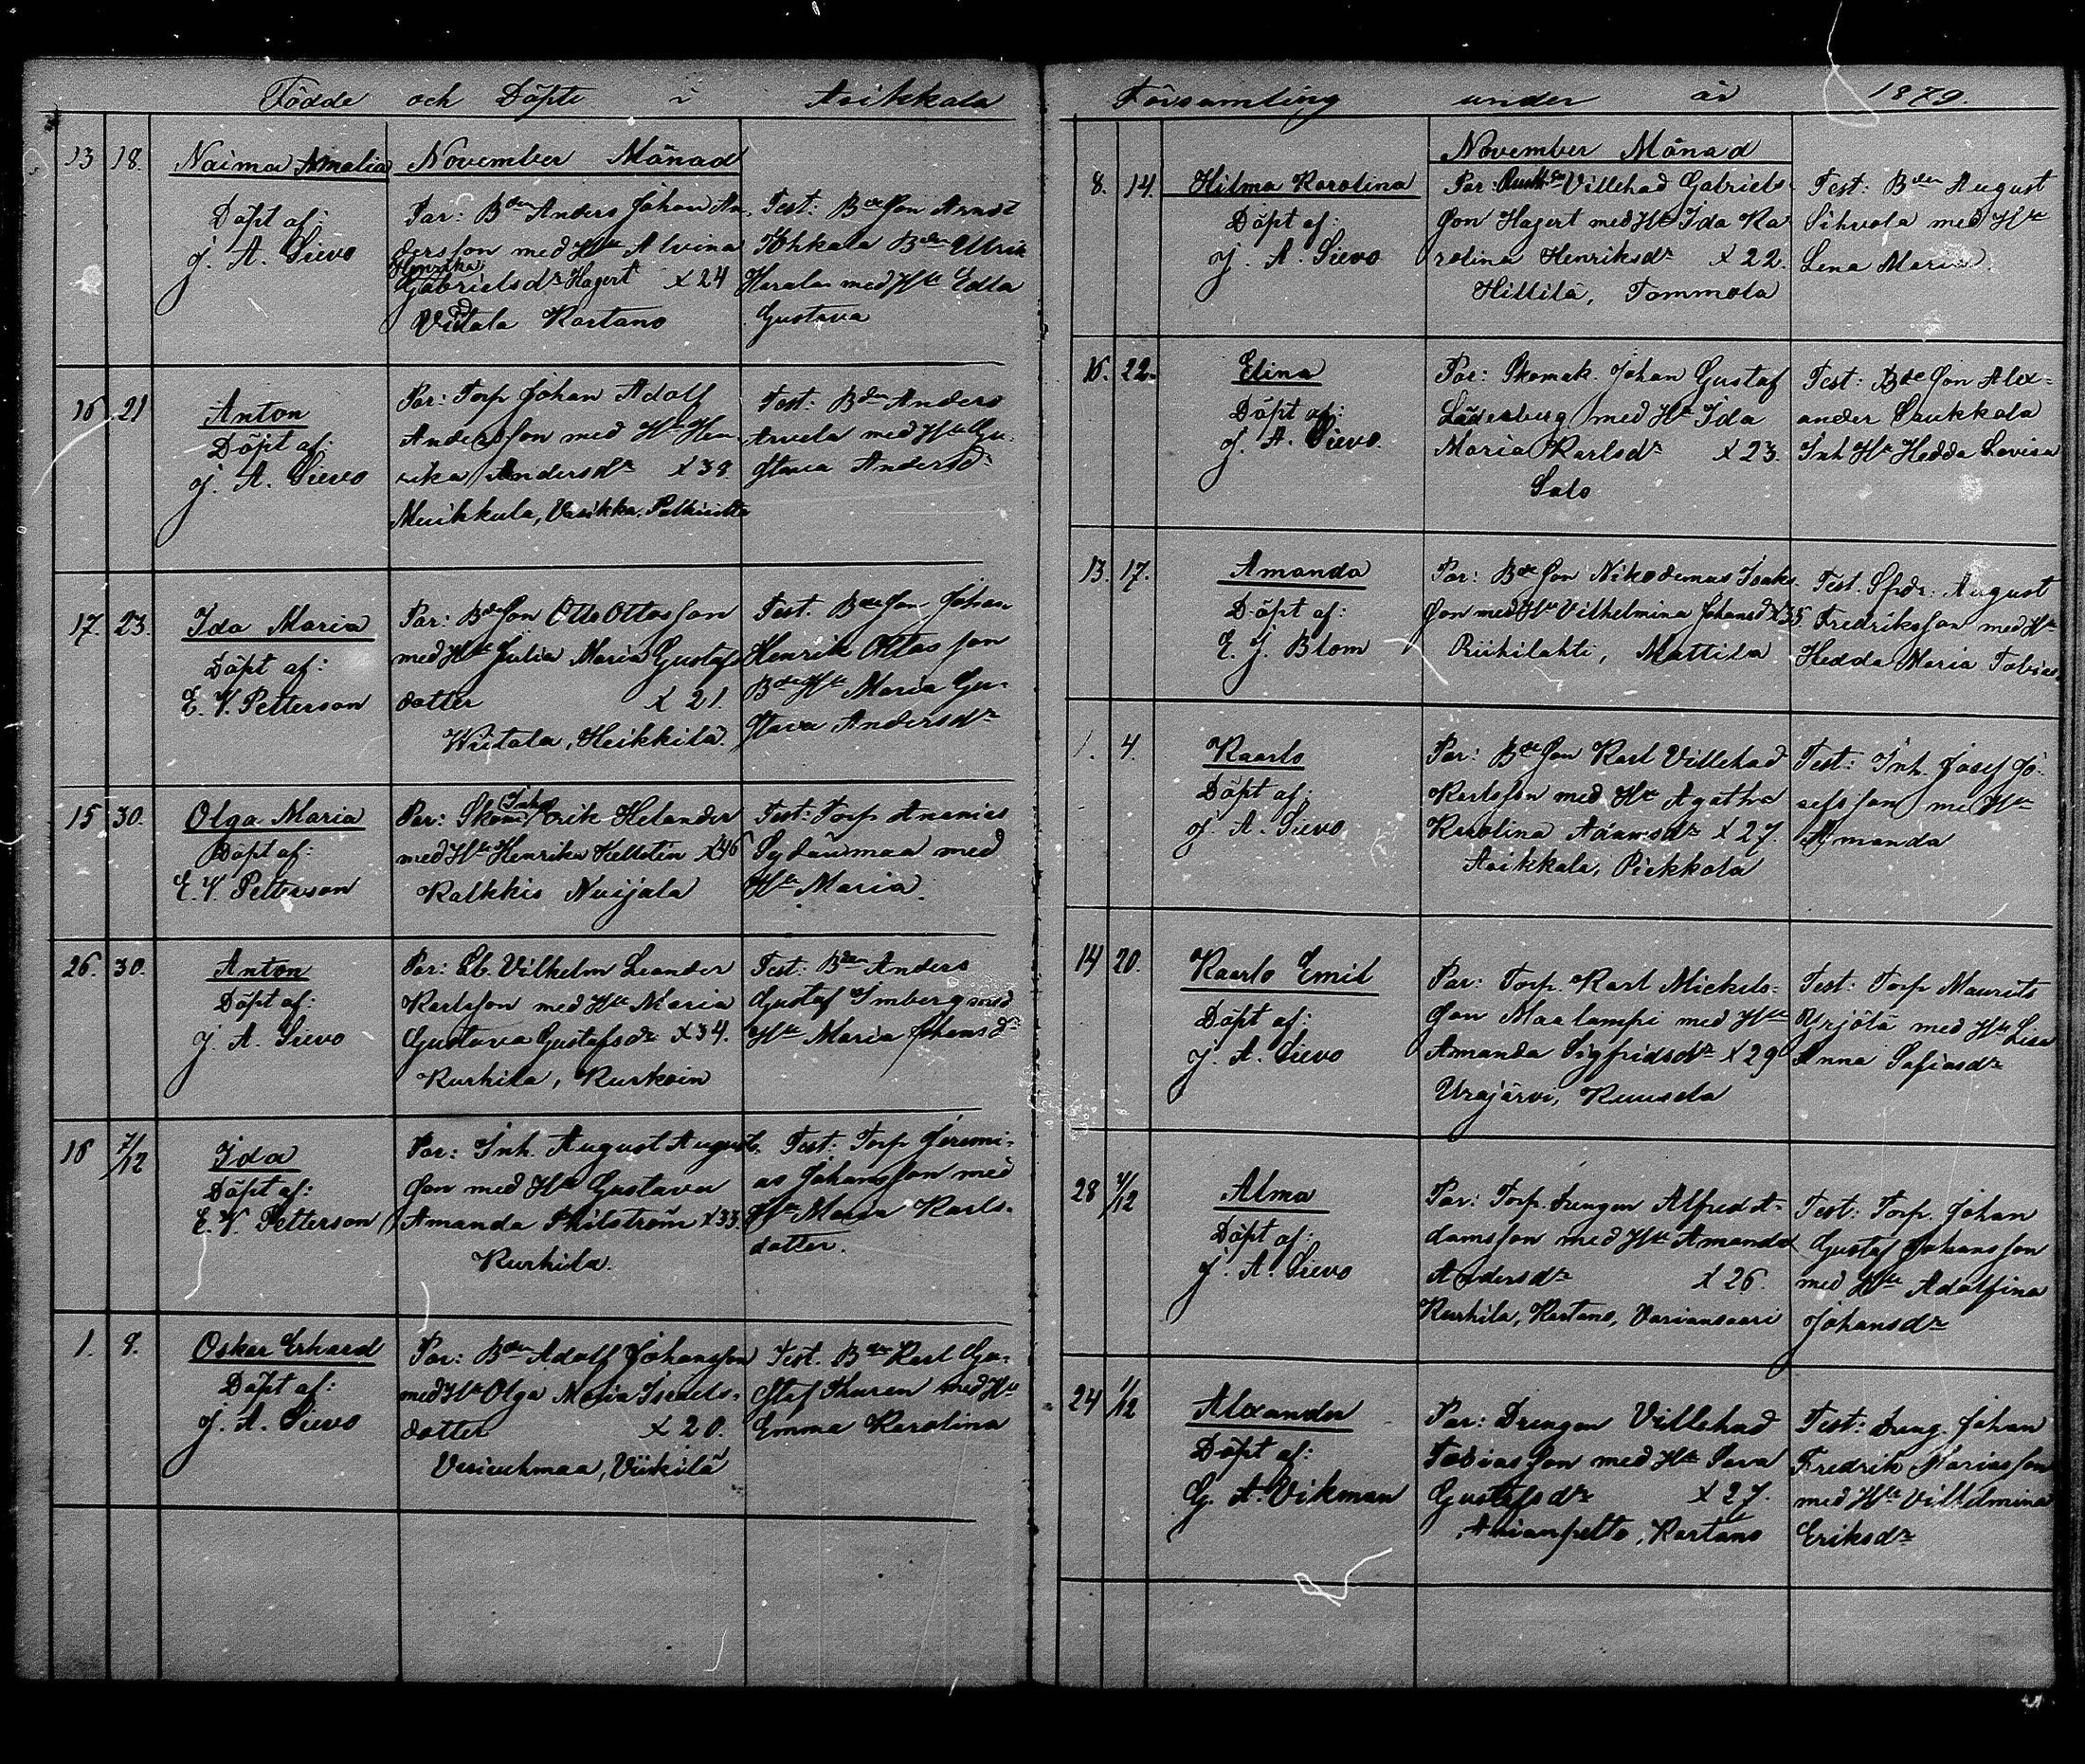 Födde och Döpte i Asikkala
13 18. Naima Amalia
Döpt af:
J. A. Sievo
November Månad
Par: Bden Anders Johan An-
dersson med Hu Alvina
Henrika
Gabrielsdr Hagert x 24
Viitala Kartano
Test: Bdeson Arndt
Uhrik
med Hu Edla
Gustava
16 21 Anton
Döpt af:
J. A. Sievo
Par: Torp Johan Adolf
Andersson med Hu Hen-
rika Andersdr x 39.
Muikkula, Vasikka
Test: Bden Anders
Arvela med Hu Gu-
stava Andersdr
17. 23. Ida Maria
Döpt af:
E. V. Petterson
Par: Bdeson Otto Ottosson
med Hu Julia Maria Gustafs
dotter x 21.
Wiitala, Heikkilä.
Test. Bdeson Johan
Henrik Ottosson
Bde Hu Maria Gu-
stava Andersdr
15 30. Olga Maria
Döpt af:
E. V. Petterson
Inh
Par: Skom. Erik Helander
med Hu Henrika Kellstén x 46
Kalkkis Nuijala
Test: Torp Ananias
Sydänmaa med
Hu Maria
26. 30. Anton
Döpt af:
J. A. Sievo
Par: Lb. Vilhelm Leander
Karlsson med Hu Maria
Gustava Gustafsdr x 34.
Kurhila, Kurkoin
Test: Bden Anders
Gustaf Imberg med
Hu Maria Johansdr
16 7/12 Ida
Döpt af:
E. V. Petterson
Par: Inh. August Augusts-
son med Hu Gustava
Amanda x 33.
Kurhila.
Test: Torp Jeremi-
as Johansson med
Hu Maria Karls-
dotter.
1. 8. Oskar Erhard
Döpt af:
J. A. Sievo
Par: Bden Adolf Johansson
med Hu Olga Maria Israels-
dotter x 20.
Vesivehmaa, Viikilä
Test. Bden Karl Gu-
staf Thuren med Hu
Emma Karolina
Församling under år 1879.
8. 14. Hilma Karolina
Döpt af:
J. A. Sievo
November Månad
Par: Villehad Gabriels-
son Hagert med Hu Ida Ka-
rolina Henriksdr x 22.
Hillilä, Tommola
Test: Bden August
Sihvola med Hu
Lena Maria.
16. 22. Elina
Döpt af:
J. A. Sievo.
Par: Skomak. Johan Gustaf
med Hu Ida
Maria Karlsdr x 23.
Salo
Test: Bdeson Alex-
ander Saukkola
Inh Hu Hedda Lovisa
13. 17. Amanda
Döpt af:
E. J. Blom
Par: Bdeson Nikodemus Isaks-
son med Hu Vilhelmina Johansd x 35
Riihilahti, Mattila
Test. August
Fredriksson med Hu
Hedda Maria Tobiasd
1. 4. Kaarlo
Döpt af:
J. A. Sievo
Par: Bdeson Karl Villehad
Karlsson med Hu Agatha
Karolina Adamsdr x 27.
Asikkala, Pickkola
Test: Inh. Josef Jo-
sefsson med Hu
Amanda
14 20. Kaarlo Emil
Döpt af:
J. A. Sievo
Par: Torp. Karl Mickels-
son Maalampi med Hu
Amanda Sigfridsdr x 29
Urajärvi, Kuusela
Test: Torp Maurits
Yrjölä med Hu Lisa
Anna Safiasdr
28 4/12 Alma
Döpt af:
J. A. Sievo
Par: Torp. drengen Alfred A-
damsson med Hu Amanda
Andersdr x 26.
Kurhila, Kartano, Varionsaari
Test: Torp. Johan
Gustaf Johansson
med Hu Adolfina
Johansdr
24 1/12 Alexander
Döpt af:
G. A. Vikman
Par: Drengen Villehad
Tobiasson med Hu Sava
Gustafsdr x 27.
Anianpelto, Kartano
Test: Dreng. Johan
Fredrik Mariasson
med Hu Vilhelmina
Eriksdr